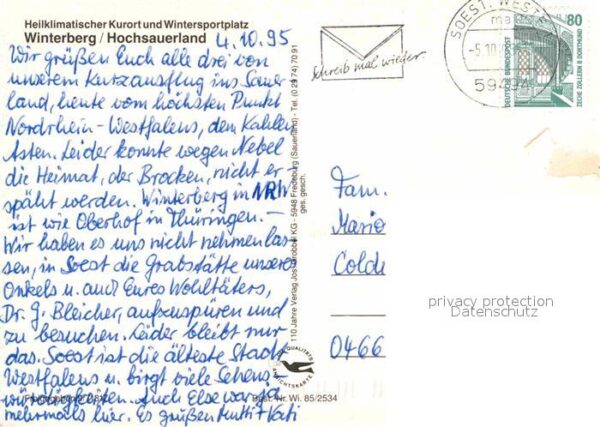 Heilklimatischer Kurort und Wintersportplatz
Winterberg / Hochsauerland
4.10.95
Wir grüßen Euch alle drei von
unserem Kurzausflug ins Sauer
land, heute vom höchsten Punkt
Nordrhein-Westfalens, dem Kahlen
Asten. Leider konnte wegen Nebel
die Heimat, der Brocken, nicht er
späht werden. Winterberg in NRW
ist wie Oberhof in Thüringen. –
Wir haben es uns nicht nehmen las
sen, in Soest die Grabstätte unseres
Onkels u. auch Eures Wohltäters,
Dr. G. Bleicher, aufzuspüren und
zu besuchen. Leider bleibt nur
das. Soest ist die älteste Stadt
Westfalens u. birgt viele Sehens-
würdigkeiten. Auch Else war ja
mehrmals hier. Es grüßen Mutti + Kati
Best. Nr. Wi. 85/2534
110 Jahre Verlag KG - 5948 Fredeburg (Sauerland) - Tel. (0 29 74) 70 91
ges. gesch.
QUALITÄTS
ANSICHTSKARTE
Schreib mal wieder.
SOEST, WEST
-5.10
59494
80
DEUTSCHE BUNDESPOST
ZECHE ZOLLERN II DORTMUND
Fam.
Mario
Cold
0466
privacy protection
Datenschutz